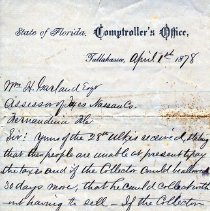 State of Florida, Comptroller's Office,
Tallahassee, April 1st 1878
Wm H. Garland Esqr
Assessor of Taxes Nassau Co.
Fernandina Fla
Sir: Yours of the 28th Ult is received, stating
that the people are unable at present to pay
the taxes and if the Collector could be allowed
30 days more, that he could collect with
out having to sell - If the Collector